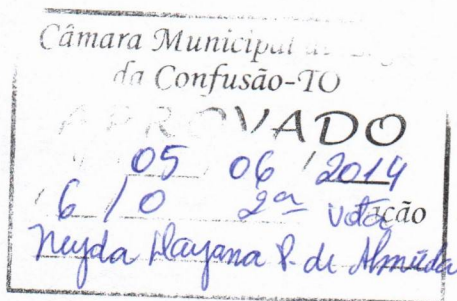 Câmara Municipal de
da Confusão-TO
APROVADO
05 06 / 2014
6 / 0 2ª votação
Neyda Dayana P. de Almeida